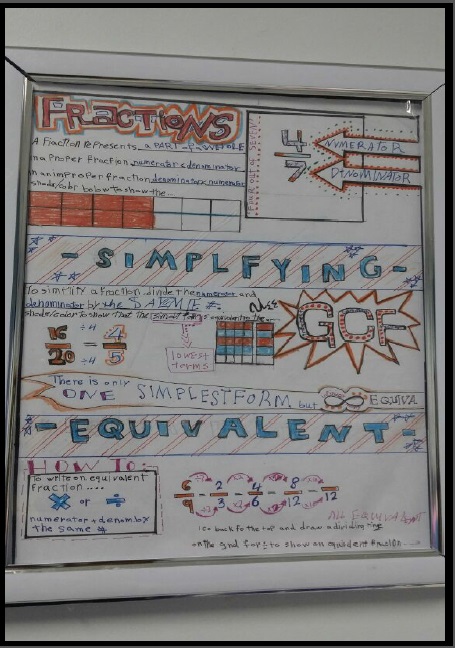 FRACTIONS
A Fraction Represents a PART of a WHOLE
In a proper fraction numerator < denominator
In an improper fraction denominator < numerator
shade/color below to show the...
FOUR OUT OF SEVEN
4
7
NUMERATOR
DENOMINATOR
- SIMPLFYING -
To simplify a fraction divide the numerator and
denominator by the SAME #.
Shade/color to show that the is equivalent to the
use
GCF
16 ÷4 = 4
20 ÷4 5
lowest
terms
There is only
ONE SIMPLEST FORM but EQUIVA
- EQUIVALENT -
HOW TO:
To write an equivalent
fraction....
× or ÷
numerator + denom by
the same #
6 = 2 = 4 = 8 =
9 3 6 12 12
ALL EQUIVALENT
Go back to the top and draw a dividing
on the grid for to show an equivalent fraction